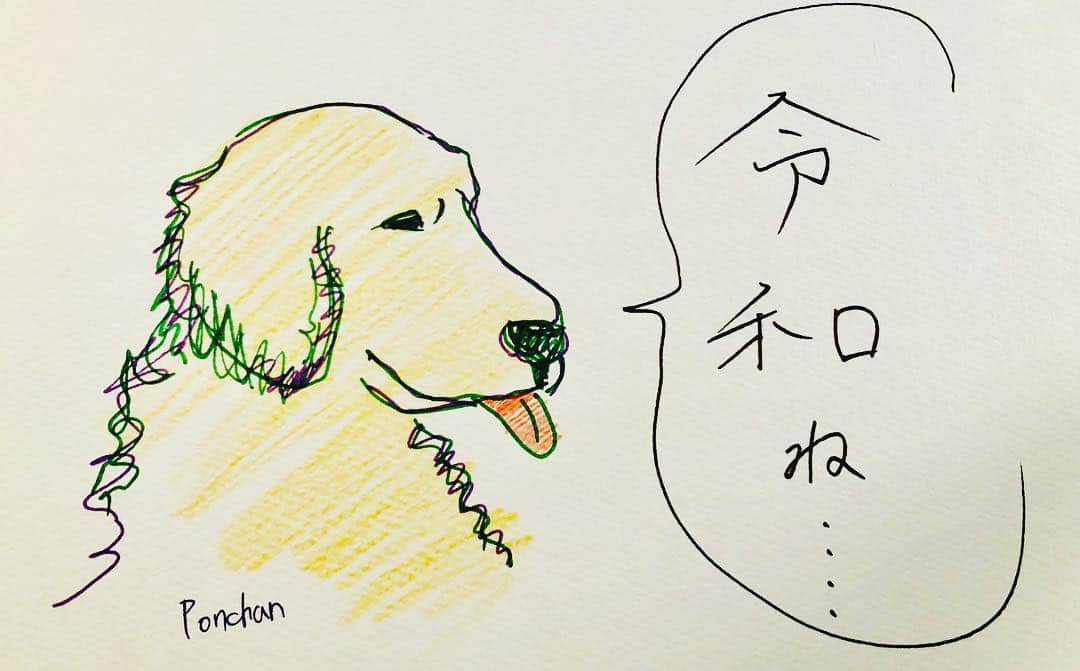 令和ね....
Ponchan